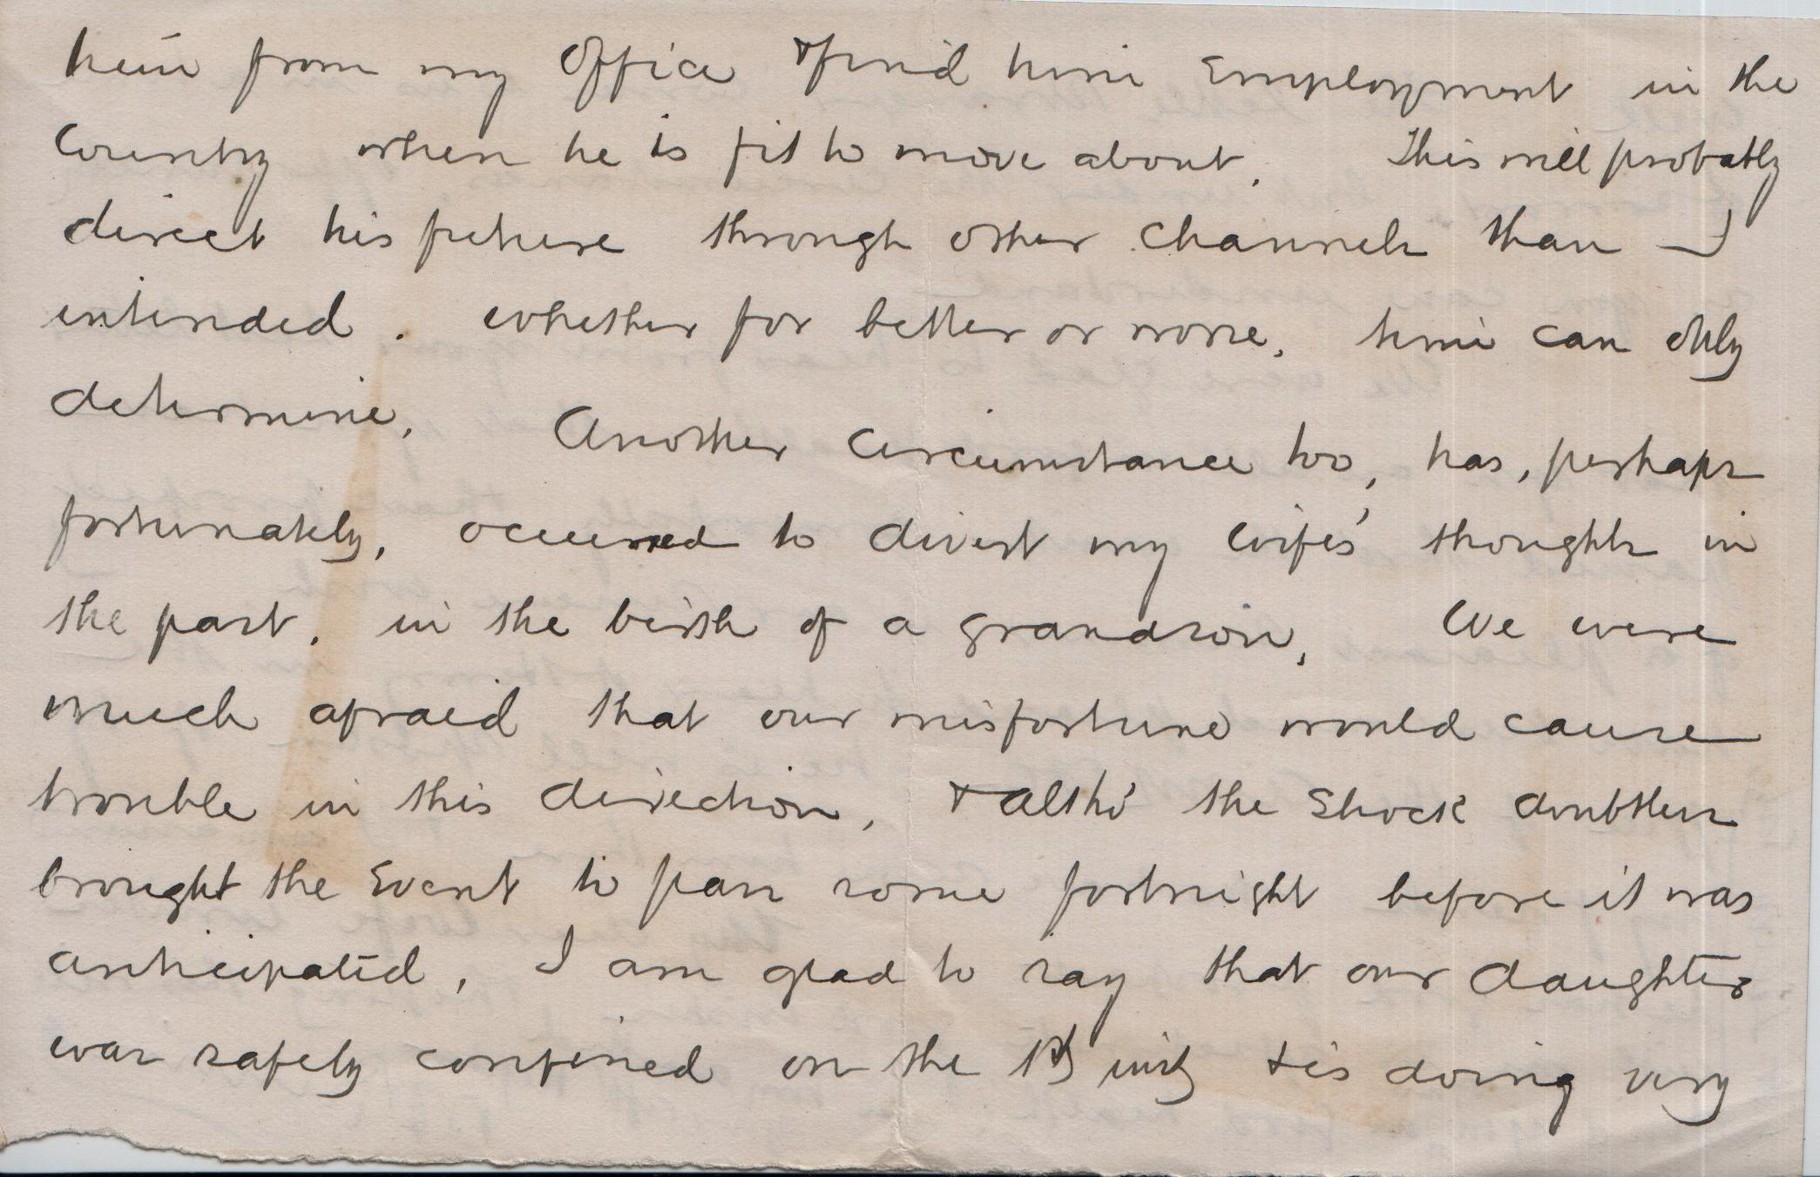 him from my Office & find him Employment in the
Country when he is fit to move about. This will probably
direct his future through other channels than I
intended. Whether for better or worse, time can only
determine. Another circumstance too, has, perhaps
fortunately, occurred to divert my wife's thoughts in
the past, in the birth of a grandson, We were
much afraid that our misfortune would cause
trouble in this direction, & altho' the Shock doubtless
brought the Event to pass some fortnight before it was
anticipated, I am glad to say that our daughter
was safely confined on the & is doing very